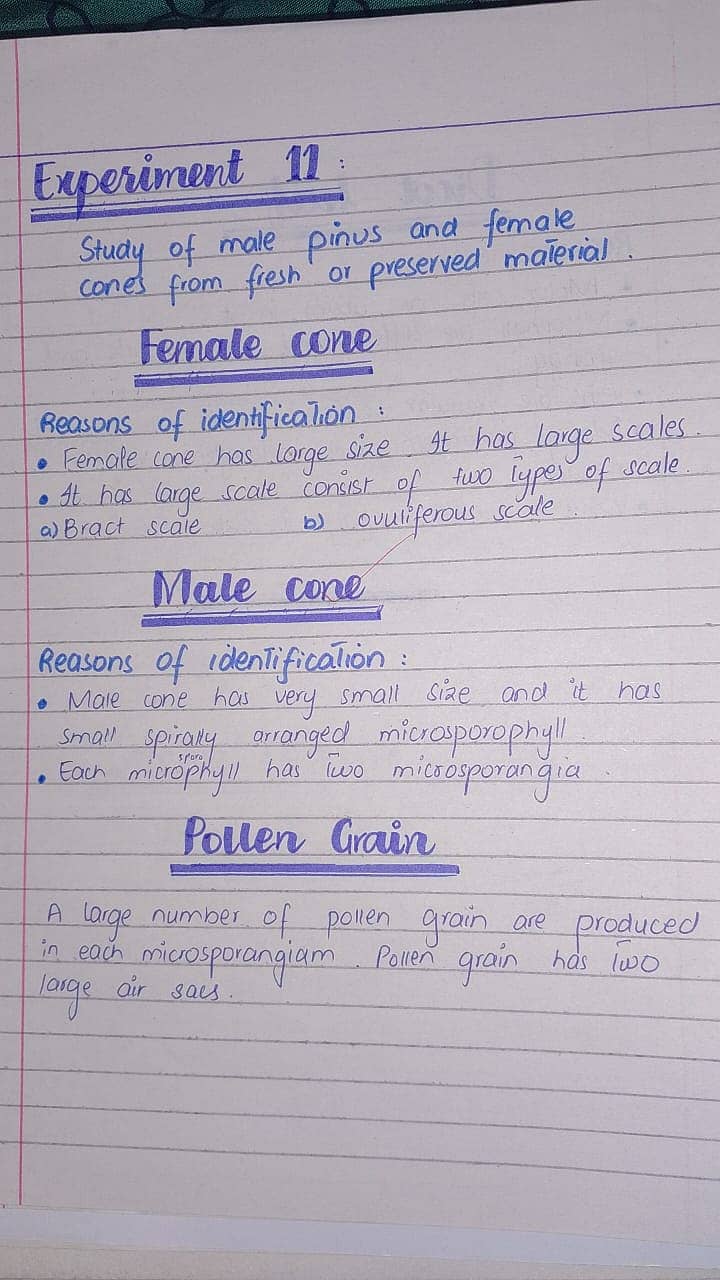 Experiment 11 :
Study of male pinus and female
cones from fresh or preserved material .
Female cone
Reasons of identification :
• Female cone has large size . It has large scales .
• It has large scale consist of two types of scale .
a) Bract scale b) ovuliferous scale .
Male cone
Reasons of identification :
• Male cone has very small size and it has
small spirally arranged microsporophyll .
sporo
• Each microphyll has two microsporangia .
Pollen Grain
A large number of pollen grain are produced
in each microsporangiam . Pollen grain has two
large air sacs .